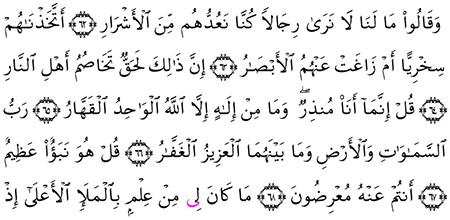 وَقَالُوا۟ مَا لَنَا لَا نَرَىٰ رِجَالًا كُنَّا نَعُدُّهُم مِّنَ ٱلْأَشْرَارِ ﴿٦٢﴾ أَتَّخَذْنَـٰهُمْ
سِخْرِيًّا أَمْ زَاغَتْ عَنْهُمُ ٱلْأَبْصَـٰرُ ﴿٦٣﴾ إِنَّ ذَٰلِكَ لَحَقٌّ تَخَاصُمُ أَهْلِ ٱلنَّارِ
﴿٦٤﴾ قُلْ إِنَّمَآ أَنَا۠ مُنذِرٌ ۖ وَمَا مِنْ إِلَـٰهٍ إِلَّا ٱللَّهُ ٱلْوَٰحِدُ ٱلْقَهَّارُ ﴿٦٥﴾ رَبُّ
ٱلسَّمَـٰوَٰتِ وَٱلْأَرْضِ وَمَا بَيْنَهُمَا ٱلْعَزِيزُ ٱلْغَفَّـٰرُ ﴿٦٦﴾ قُلْ هُوَ نَبَؤٌا۟ عَظِيمٌ
﴿٦٧﴾ أَنتُمْ عَنْهُ مُعْرِضُونَ ﴿٦٨﴾ مَا كَانَ لِىَ مِنْ عِلْمٍۭ بِٱلْمَلَإِ ٱلْأَعْلَىٰٓ إِذْ